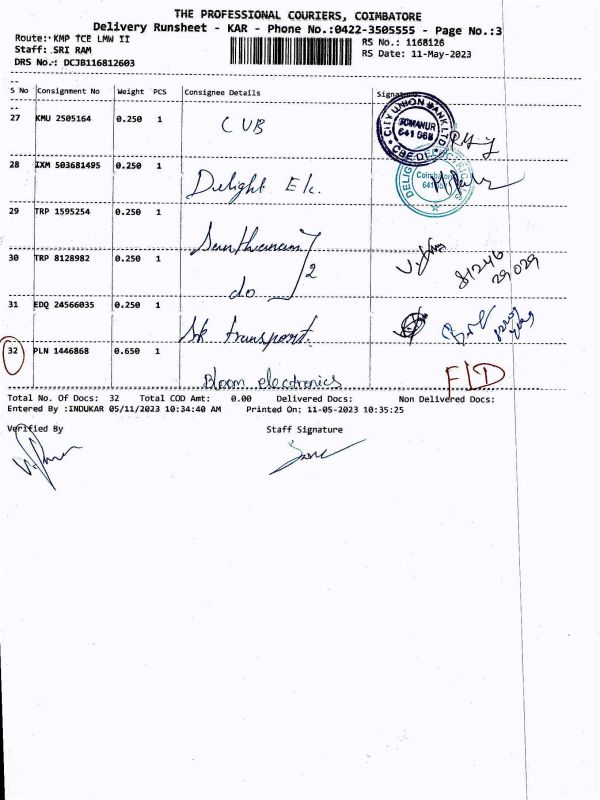 THE PROFESSIONAL COURIERS, COIMBATORE
Delivery Runsheet - KAR - Phone No.:0422-3505555 - Page No.:3
Route: KMP TCE LMW II RS No.: 1168126
Staff: SRI RAM RS Date: 11-May-2023
DRS No.: DCJB116812603
S No Consignment No Weight PCS Consignee Details Signature
27 KMU 2505164 0.250 1 CUB
CITY UNION BANK LTD
SOMANUR
641 668
CBE.DT.
28 IXM 503681495 0.250 1 Delight Elc.
DELIGHT ELECTRICALS
Coimbatore
29 TRP 1595254 0.250 1 Santhanam 2
30 TRP 8128982 0.250 1 do
81246
29029
31 EDQ 24566035 0.250 1 Sk transport.
32 PLN 1446868 0.650 1 Bloom electronics F/D
Total No. Of Docs: 32 Total COD Amt: 0.00 Delivered Docs: Non Delivered Docs:
Entered By :INDUKAR 05/11/2023 10:34:40 AM Printed On: 11-05-2023 10:35:25
Verified By Staff Signature